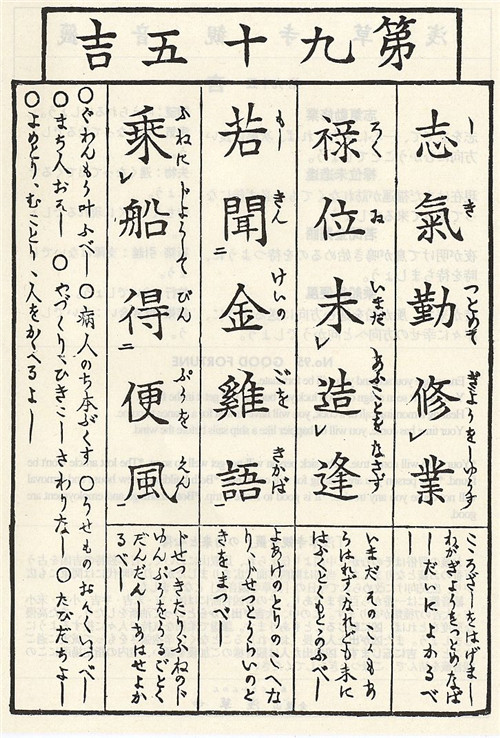 第九十五吉
志氣勤修レ業
しきつとめてぎょうをしゆうす
こころざしをはげまし
わがぎよをつとめなば
しだいに よかるべし
禄位未レ造レ逢
いまだあふことをなさず
いまだ そのこんもあ
らはれずなれども 末に
はふくもとのふべし
若聞二金雞語一
もしきんけいのごをきかば
よあけのとりのこへな
り、よきしよらいのと
きをまつべし
乗船得二便風一
ふねに
びんぷう
せつきたりふねの
ゆんぷうをうるごとく
だんだんしあはせよか
るべし
〇 叶ふべし〇病人のち本ぶくす 〇うせもの いづべし
〇まち人おそし 〇やづくり、ひきこしさわりなし 〇たびだちよし
〇よめとり、むことり、人をかゝへるよし